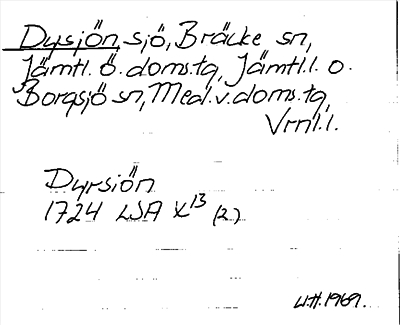 Dysjön, sjö, Bräcke sn,
Jämtl. ö. doms.tg, Jämtl.l. o.
Borgsjö sn, Med.v.doms.tg,
Vrnl.l.
Dyrsiön
1724 LSA X13 (2.)
U.H. 1969.